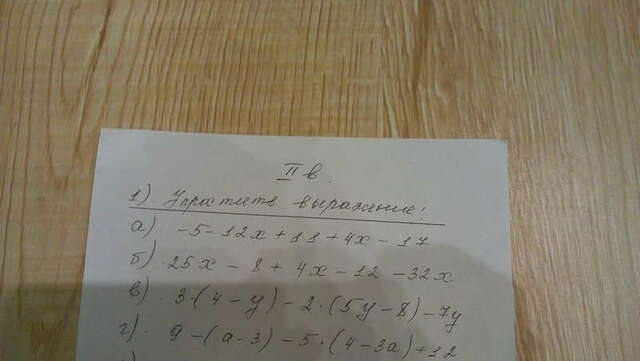 II в.
1) Упростить выражение:
а) -5-12x+11+4x-17
б) 25x-8+4x-12-32x
в) 3·(4-y)-2·(5y-8)-7y
г) 9-(a-3)-5·(4-3a)+12